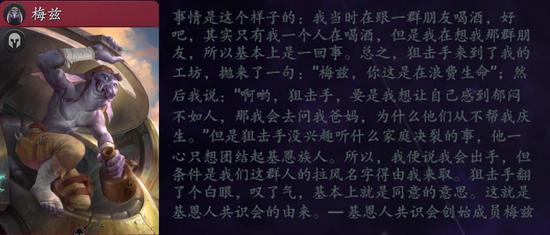 梅兹
事情是这个样子的：我当时在跟一群朋友喝酒，好
吧，其实只有我一个人在喝酒，但是我在想我那群朋
友，所以基本上是一回事。总之，狙击手来到了我的
工坊，抛来了一句：“梅兹，你这是在浪费生命”；然
后我说：“啊哟，狙击手，要是我想让自己感到郁闷
不如人，那我会去问我爸妈，为什么他们从不帮我庆
生。”但是狙击手没兴趣听什么家庭决裂的事，他一
心只想团结起基恩族人。所以，我便说我会出手，但
条件是我们这群人的拉风名字得由我来取。狙击手翻
了个白眼，叹了气，基本上就是同意的意思。这就是
基恩人共识会的由来。— 基恩人共识会创始成员梅兹